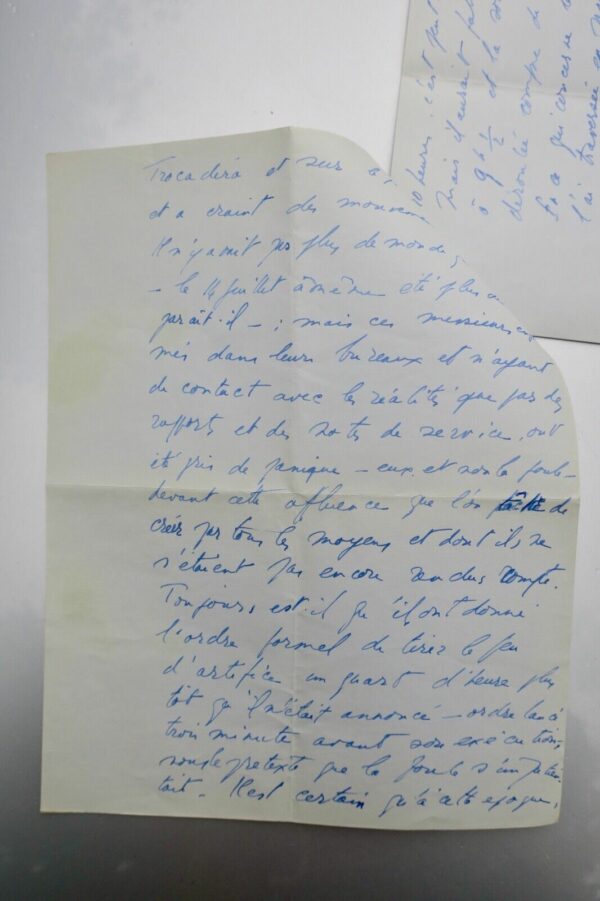 Trocadéro et sur
et a craint des mouvem
Il n'y avait pas plus de monde
- le 14 juillet a même été plus
paraît-il - ; mais ces messieurs en
més dans leurs bureaux et n'ayant
de contact avec les réalités que par des
rapports et des notes de service, ont
été pris de panique - eux et non la foule -
devant cette affluence que l'on tâche de
créer par tous les moyens et dont ils ne
s'étaient pas encore rendus compte.
Toujours est-il qu'ils ont donné
l'ordre formel de tirer le feu
d'artifice un quart d'heure plus
tôt qu'il n'était annoncé - ordre lancé
trois minute avant son exécution,
sous le pretexte que la foule s'impatien
tait - Il est certain qu'à cette epoque,
10 heures, c'est peut
mais il aurait fal
à 9 h ½ et la
déroulée compre de
En ce qui concerne
l'ai traversée en